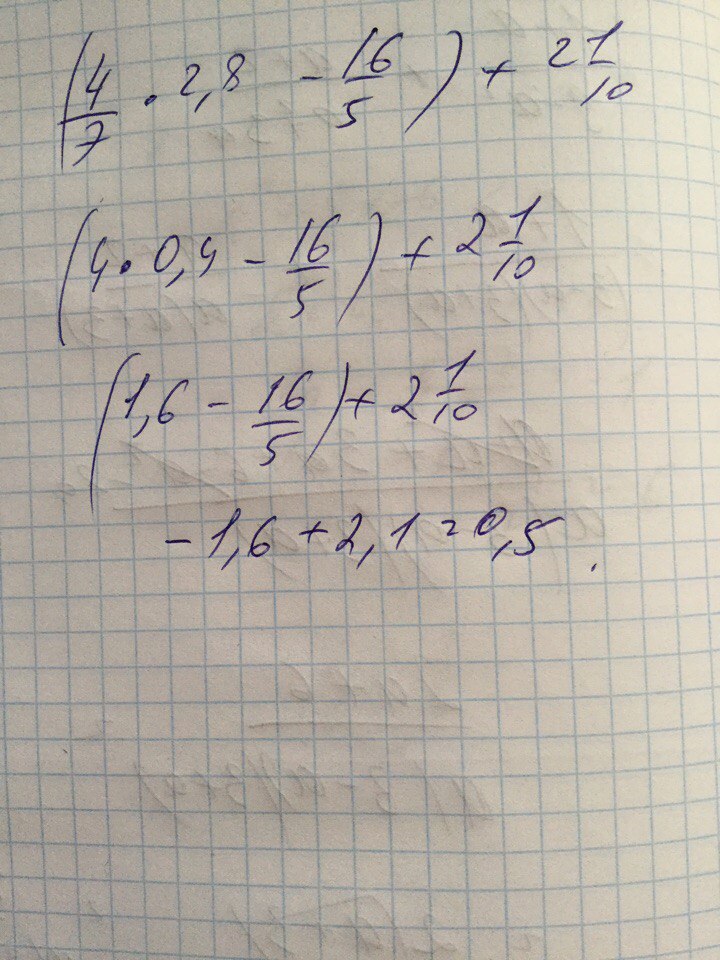 (4/7 · 2,8 - 16/5) + 2 1/10
(4 · 0,4 - 16/5) + 2 1/10
(1,6 - 16/5) + 2 1/10
- 1,6 + 2,1 = 0,5.